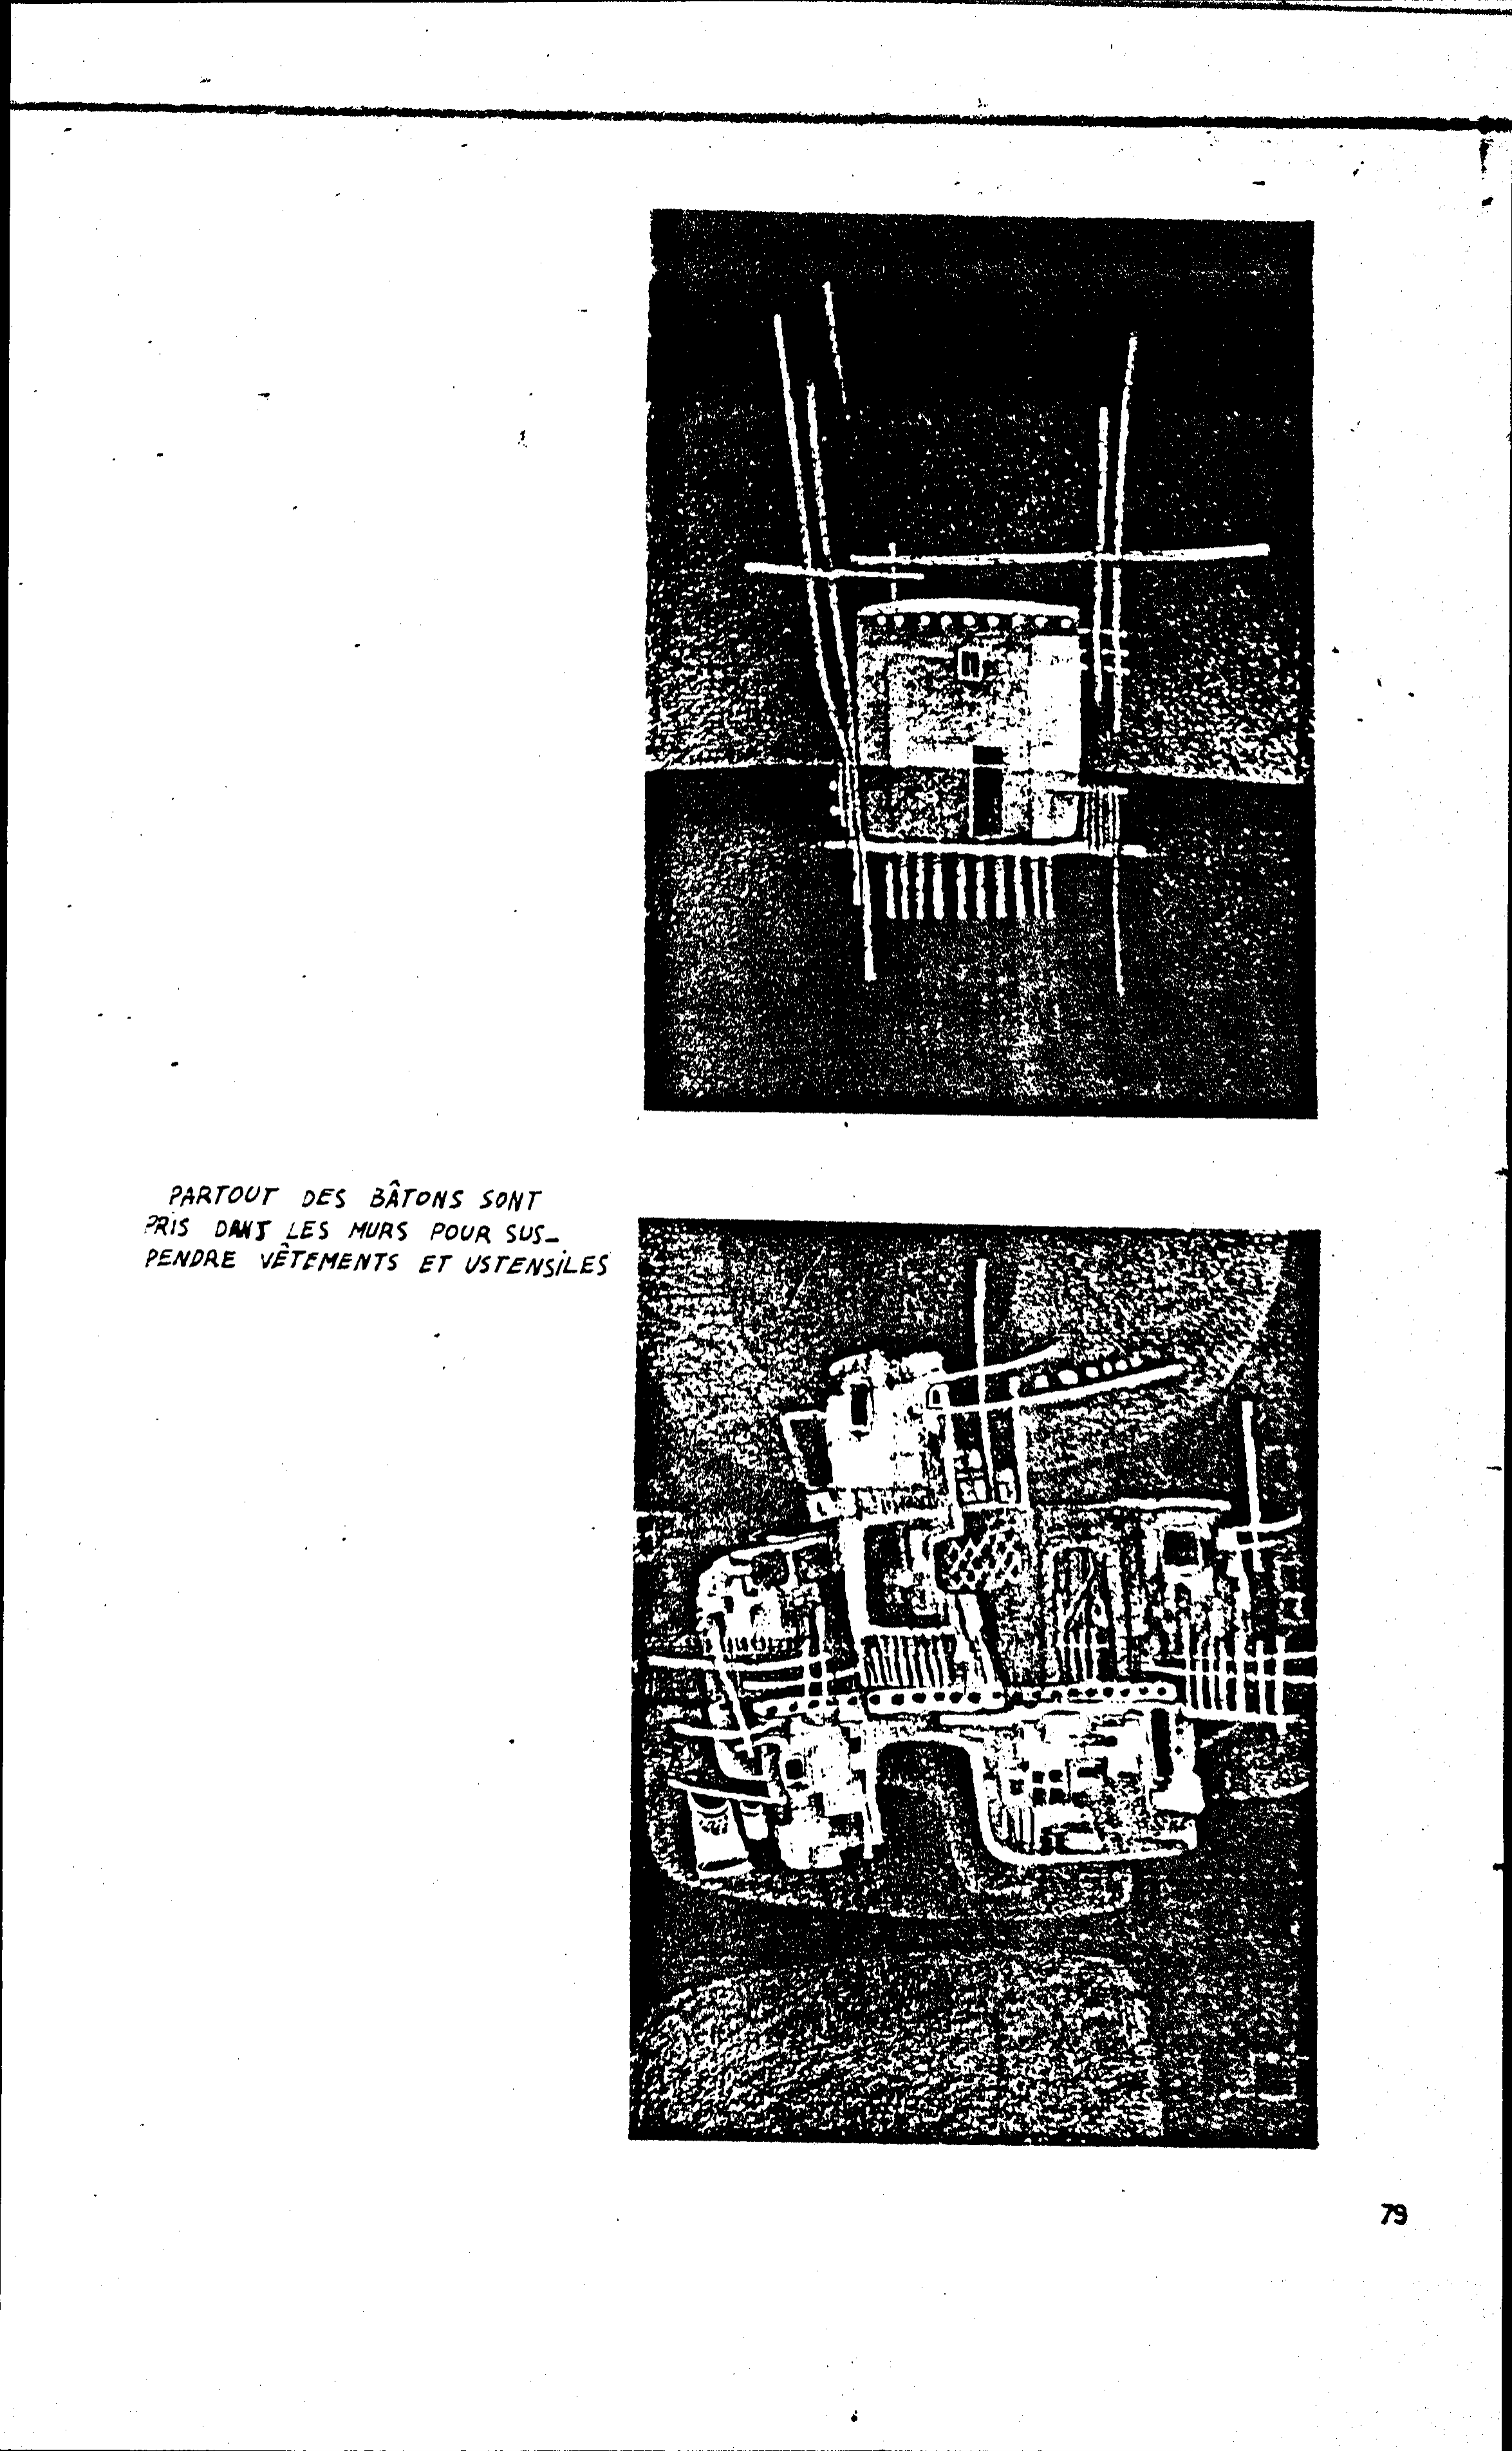 PARTOUT DES BÂTONS SONT
PRIS DANS LES MURS POUR SUS-
PENDRE VÊTEMENTS ET USTENSILES
79